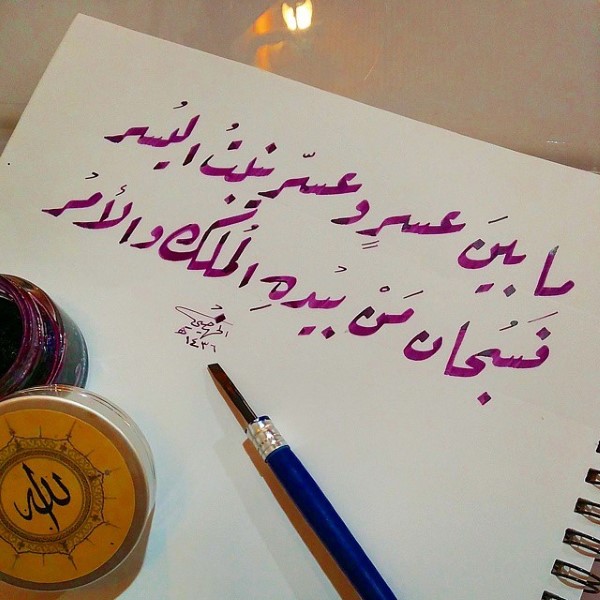 ما بينَ عسرٍ وعسرٍ ينبتُ اليُسر
فَسُبحان مَنْ بيُدهِ المُلك والأمرُ
١٤٣٦هـ
الله